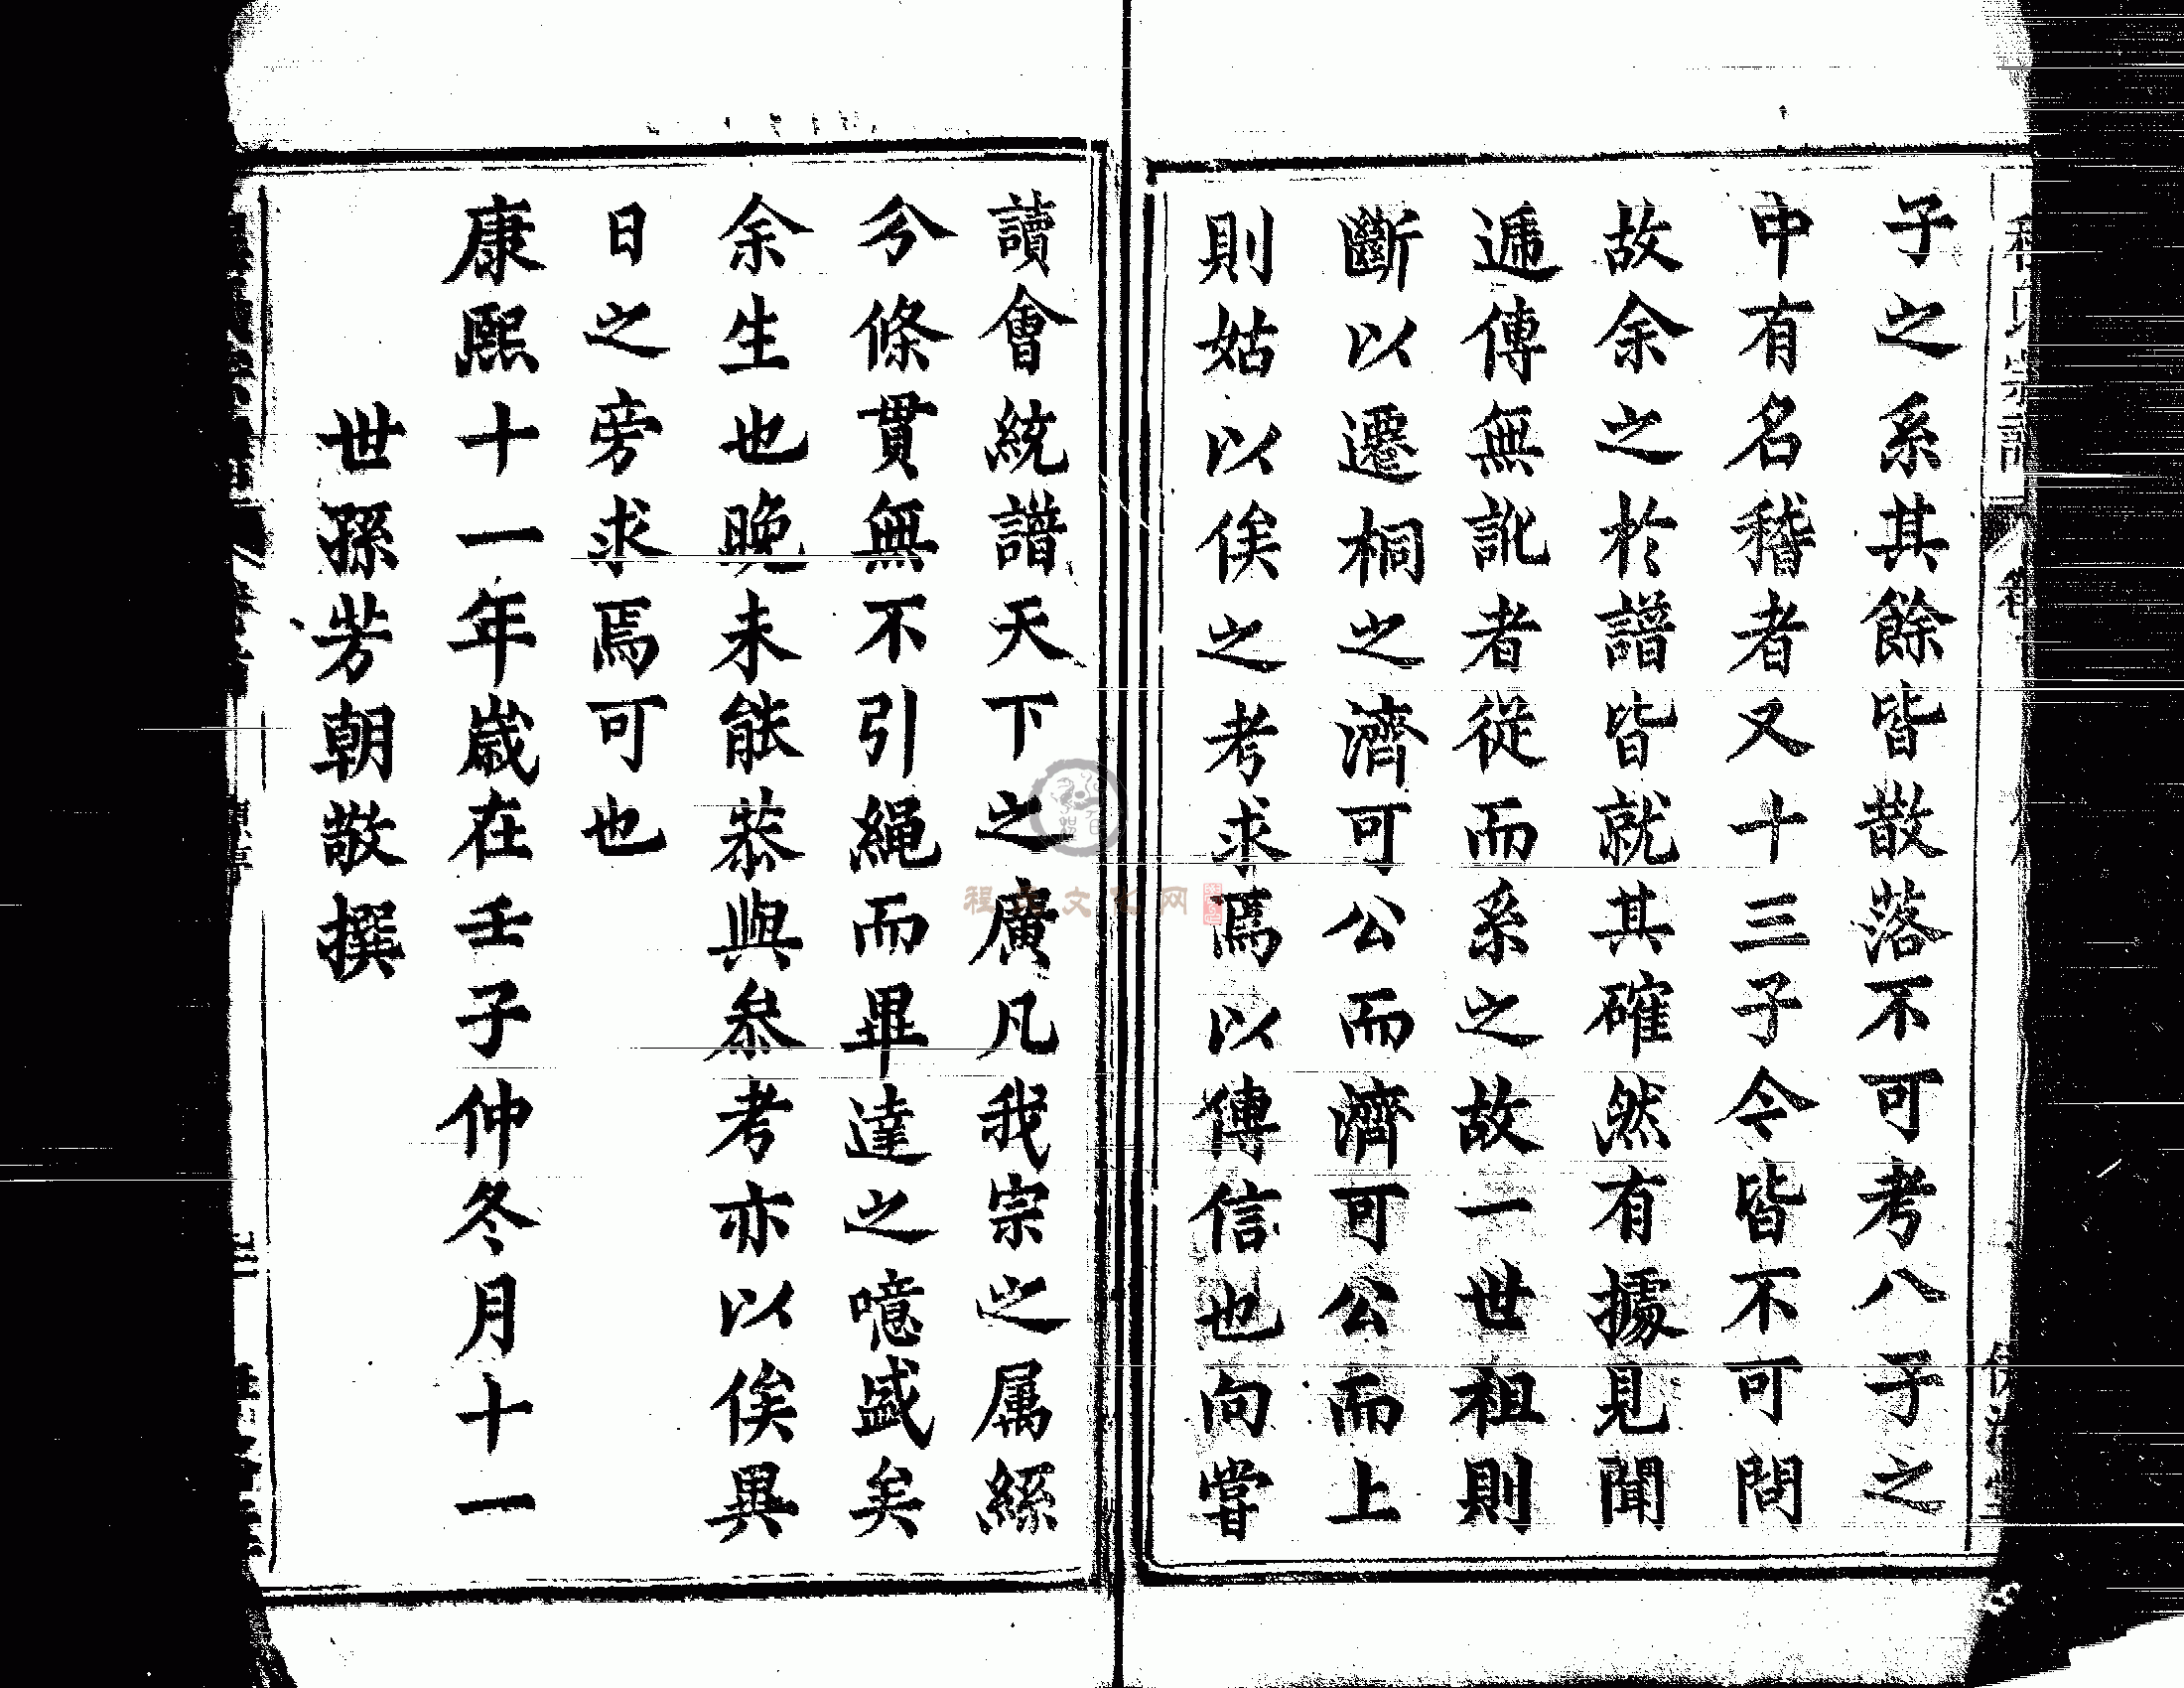 子之系其餘皆散落不可考八子之
中有名稽者又十三子令皆不可問
故余之於譜皆就其確然有據見聞
遞傳無訛者從而系之故一世祖則
斷以遷桐之濟可公而濟可公而上
則姑以俟之考求焉以傳信也向嘗
讀會統譜天下之廣凡我宗之属絲
分條貫無不引繩而畢達之噫盛矣
余生也晚未能恭與叅考亦以俟異
日之旁求焉可也
康熙十一年歲在壬子仲冬月十一
世孫芳朝敬撰
程 文化网